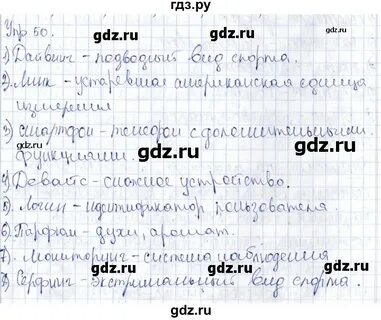 gdz.ру
Упр 50.
1) Дайвинг - подводный вид спорта.
2) Линк - устаревшая американская единица
измерения
3) смартфон - телефон с дополнительными
функциями.
4) Девайс - сложное устройство.
5) Логин - идентификатор пользователя.
6) Парфюм - духи, аромат.
7) Мониторинг - система наблюдения
8) Серфинг - экстримальный вид спорта.
gdz.ru gdz.ru
gdz.ru gdz.ru
gdz.ru gdz.ru
gdz.ru gdz.ru
gdz.ru gdz.ru